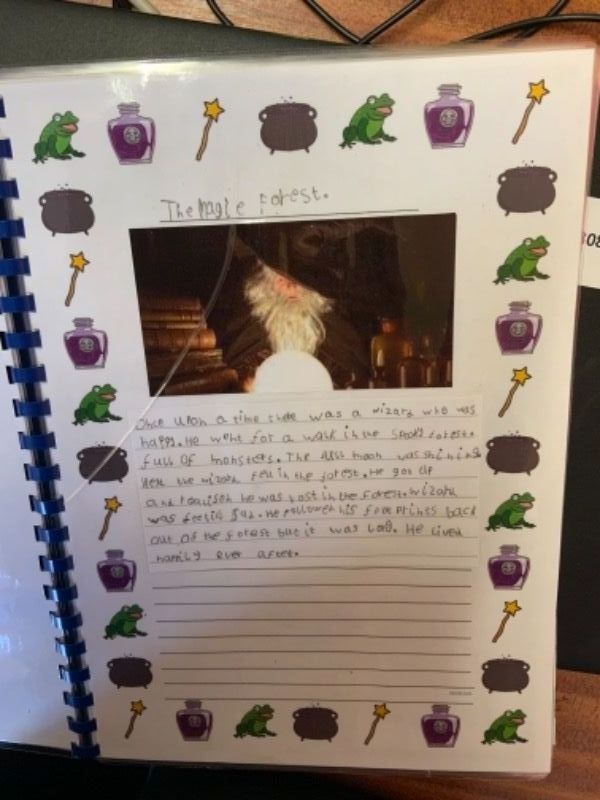 The Magic Forest.
Once upon a time there was a wizard who was
happy. He went for a walk in the spooky forest.
full of monsters. The moon was shining.
the wizard fell in the forest. He got up
and realised he was lost in the forest. wizard
was feeling sad. He followed his footprints back
out of the forest but it was. He lived
happily ever after.